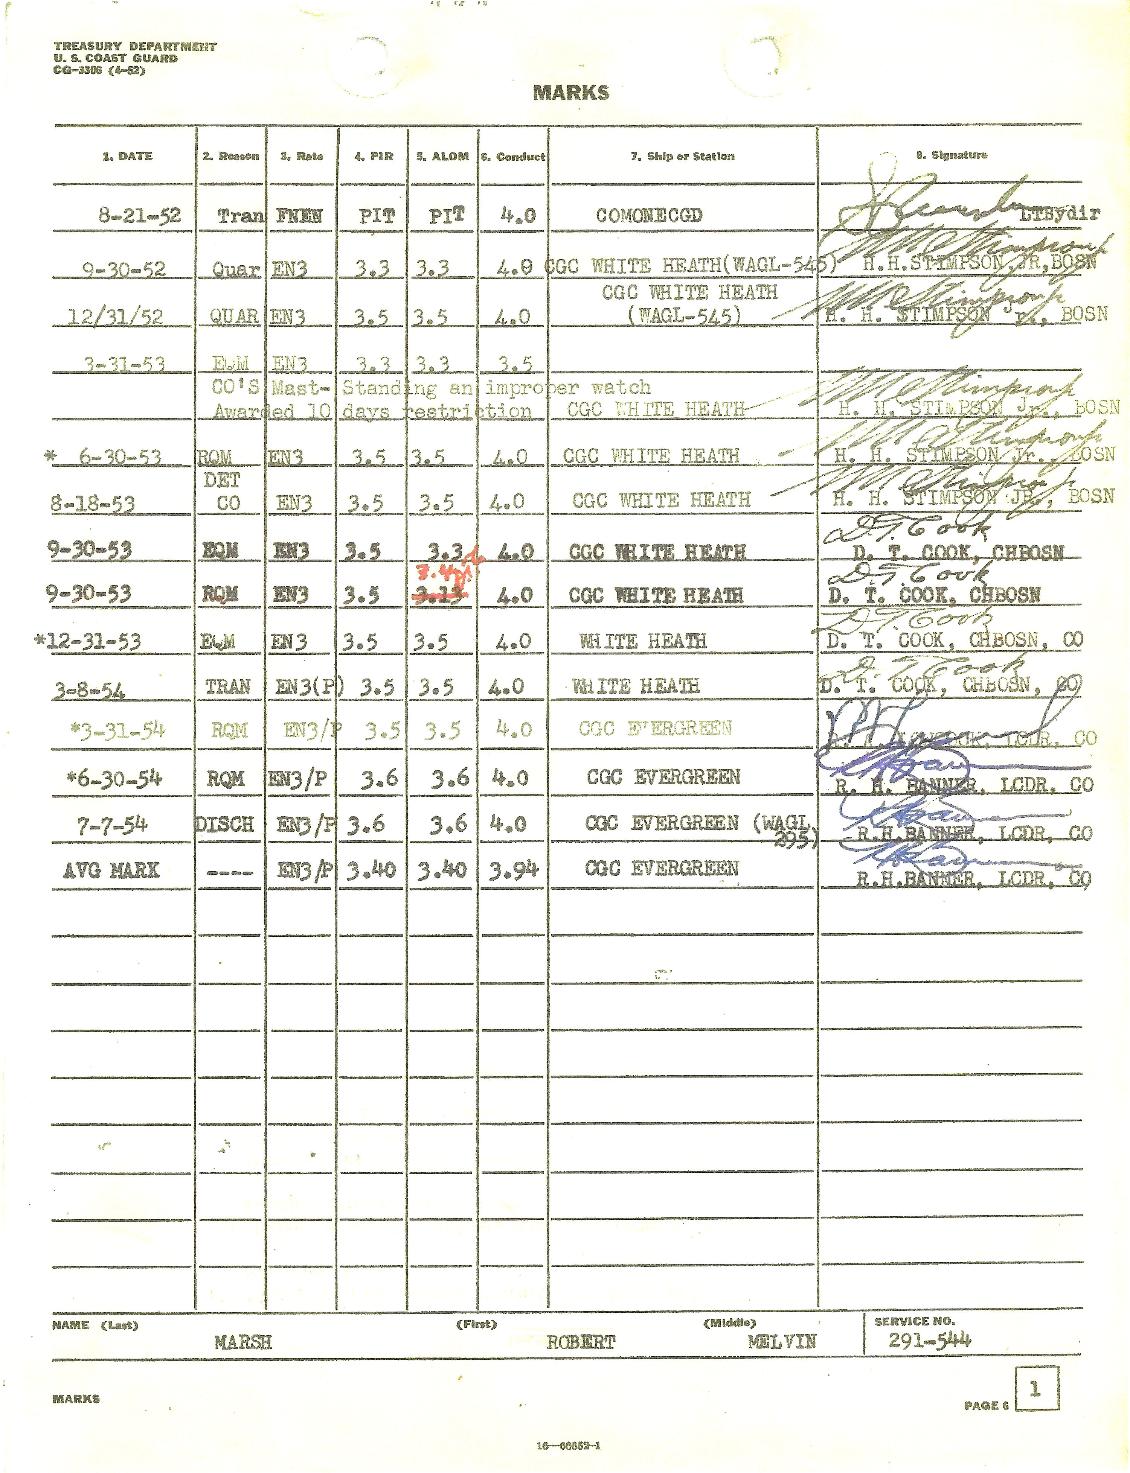 TREASURY DEPARTMENT
U. S. COAST GUARD
CG-3306 (4-52)
MARKS
1. DATE 2. Reason 3. Rate 4. PIR 5. ALOM 6. Conduct 7. Ship or Station 8. Signature
8-21-52 Tran FNEN PIT PIT 4.0 COMONECGD LTBydir
9-30-52 Quar EN3 3.3 3.3 4.0 CGC WHITE HEATH(WAGL-545) H.H.STIMPSON,JR,BOSN
CGC WHITE HEATH
12/31/52 QUAR EN3 3.5 3.5 4.0 (WAGL-545) H. H. STIMPSON Jr., BOSN
3-31-53 EQM EN3 3.3 3.3 3.5
CO'S Mast- Standing an improper watch
Awarded 10 days restriction CGC WHITE HEATH H. H. STIMPSON Jr., BOSN
* 6-30-53 RQM EN3 3.5 3.5 4.0 CGC WHITE HEATH H. H. STIMPSON Jr., BOSN
DET
8-18-53 CO EN3 3.5 3.5 4.0 CGC WHITE HEATH H. H. STIMPSON JR., BOSN
D. T. Cook
9-30-53 EQM EN3 3.5 3.3 4.0 CGC WHITE HEATH D. T. COOK, CHBOSN
3.4 D. T. Cook
9-30-53 RQM EN3 3.5 3.13 4.0 CGC WHITE HEATH D. T. COOK, CHBOSN
D. T. Cook
*12-31-53 EQM EN3 3.5 3.5 4.0 WHITE HEATH D. T. COOK, CHBOSN, CO
D. T. Cook
3-8-54 TRAN EN3(P) 3.5 3.5 4.0 WHITE HEATH D. T. COOK, CHBOSN, CO
*3-31-54 RQM EN3/P 3.5 3.5 4.0 CGC EVERGREEN LCDR, CO
*6-30-54 RQM EN3/P 3.6 3.6 4.0 CGC EVERGREEN R. H. BANNER, LCDR, CO
7-7-54 DISCH EN3/P 3.6 3.6 4.0 CGC EVERGREEN (WAGL R.H.BANNER, LCDR, CO
295)
AVG MARK ---- EN3/P 3.40 3.40 3.94 CGC EVERGREEN R.H.BANNER, LCDR, CO
NAME (Last) (First) (Middle) SERVICE NO.
MARSH ROBERT MELVIN 291-544
MARKS PAGE 6 1
16—66652-1